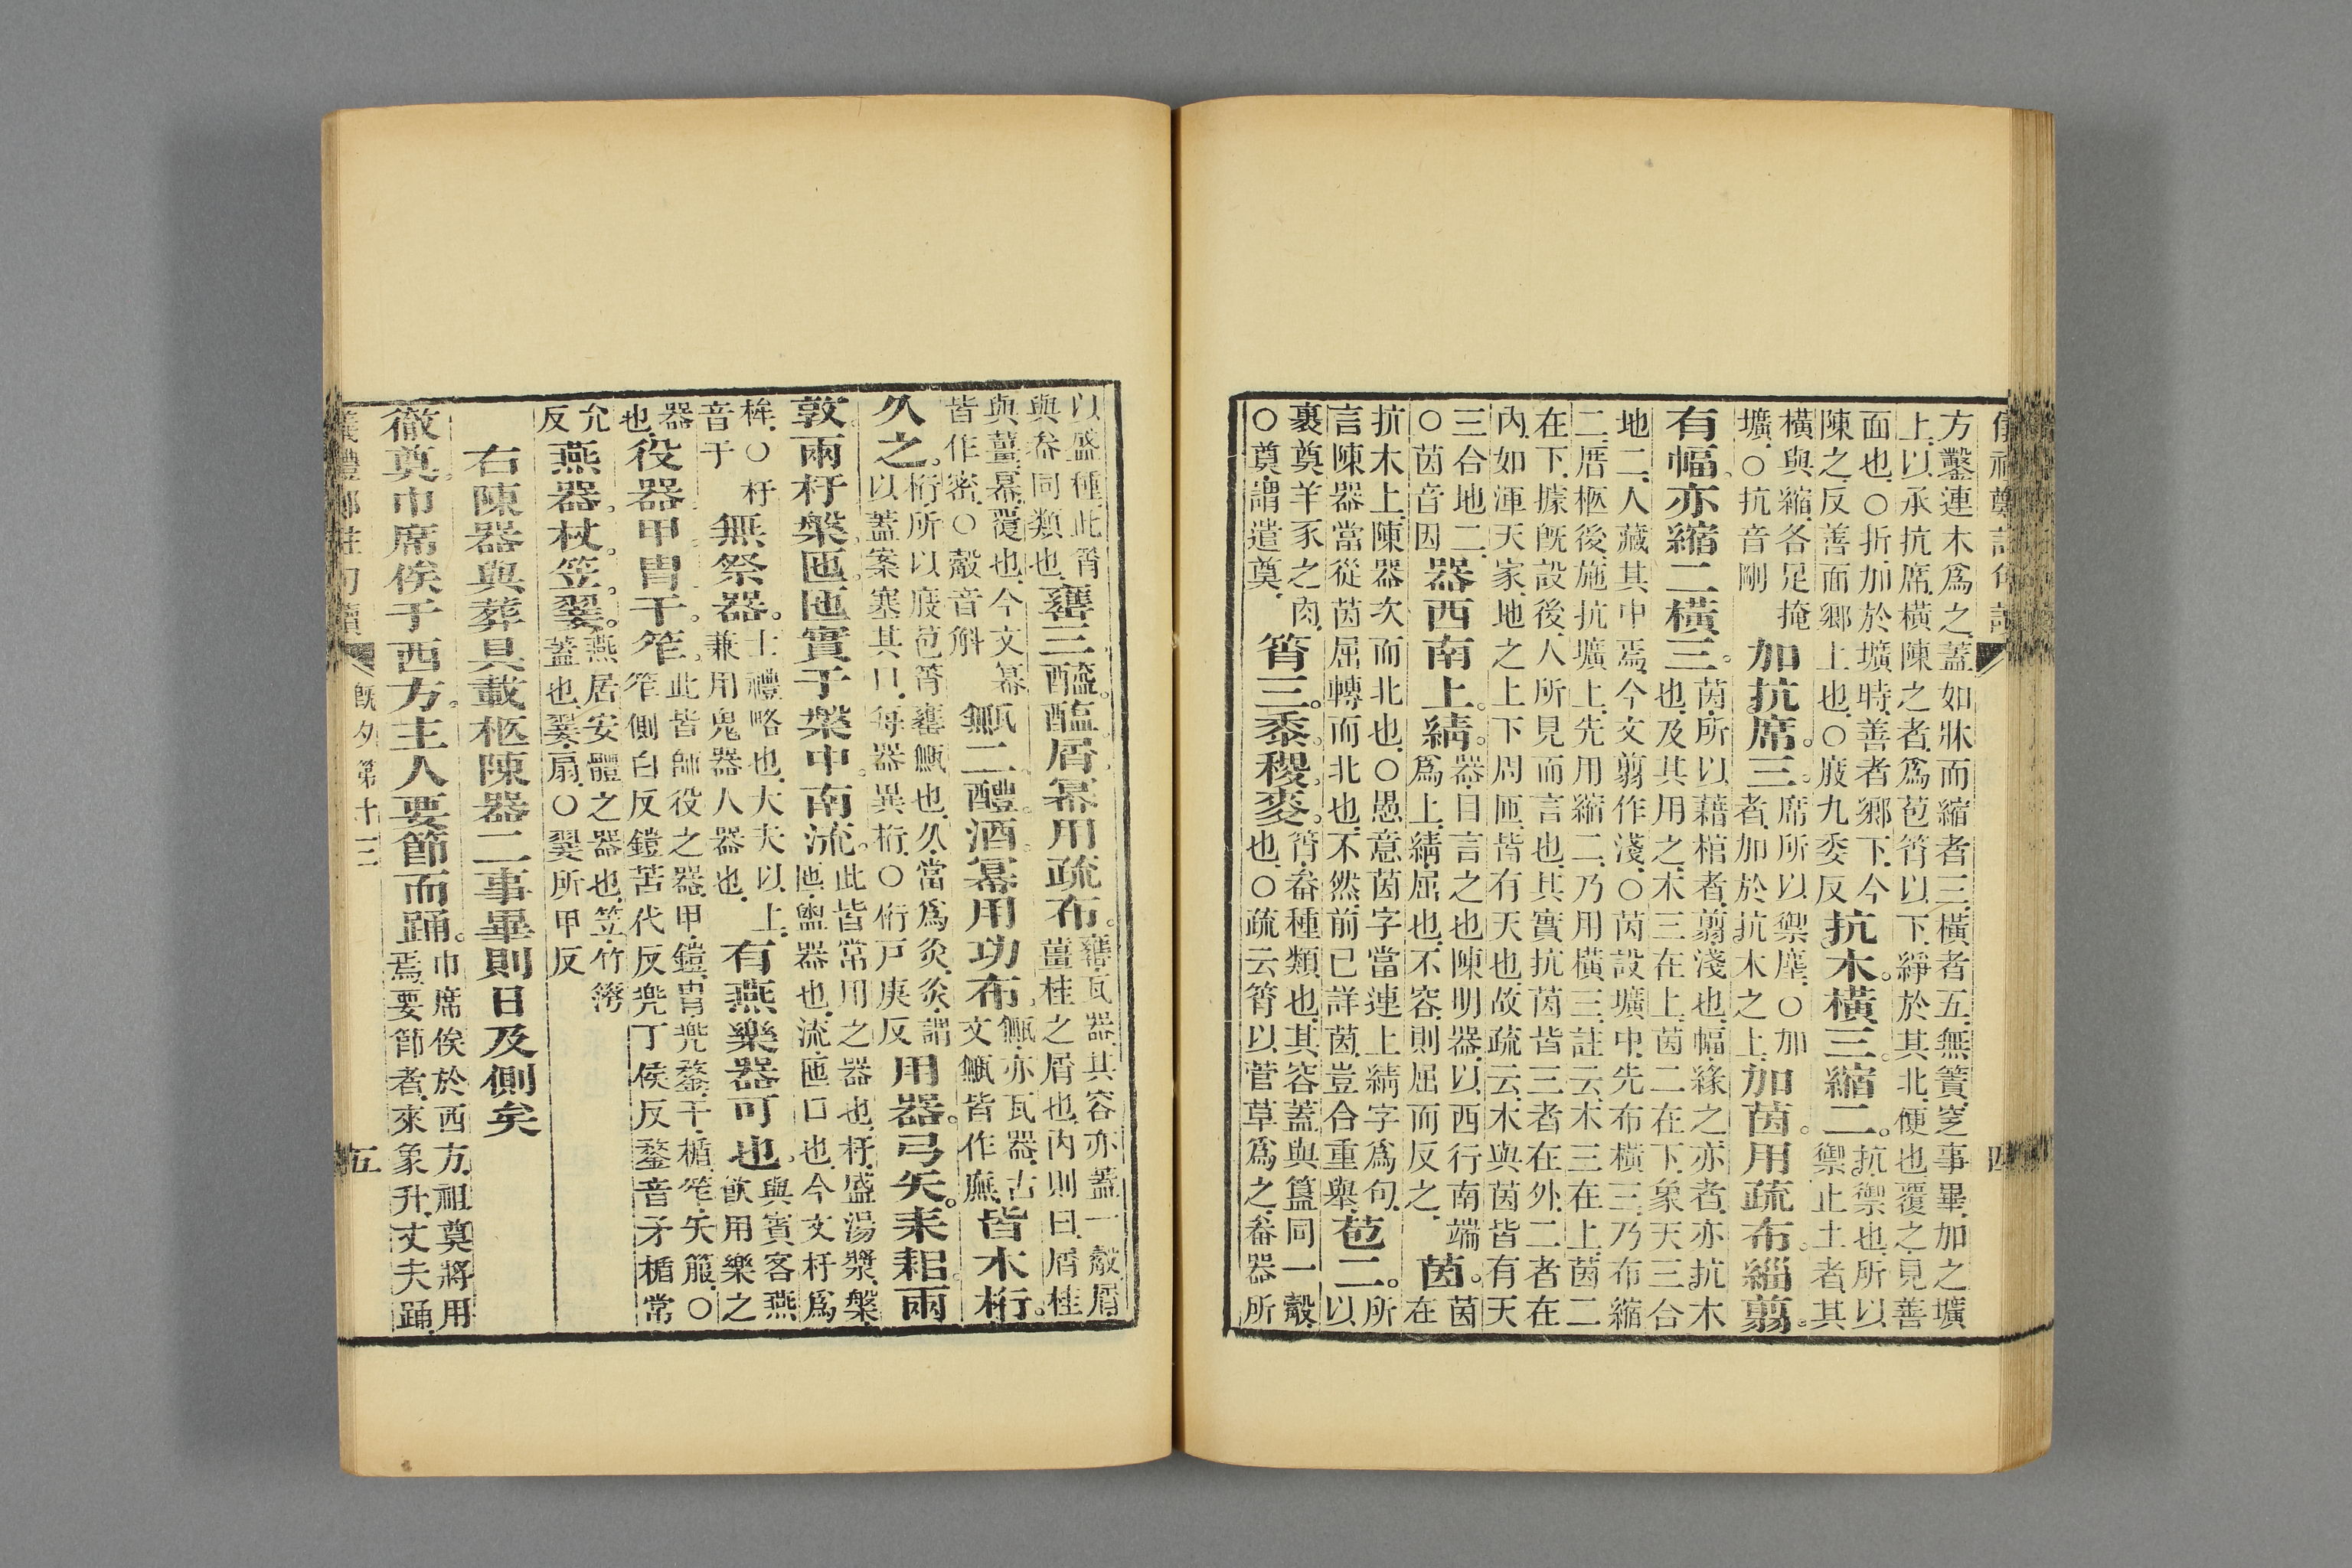 方鑿連木爲之。蓋如牀而縮者三。橫者五。無簣。窆事畢。加之壙
上。以承抗席。橫陳之者。爲苞筲以下。綪於其北。便也。覆之。見善
面也。○折加於壙時。善者鄉下。今陳之。反善面鄉上也。○庪九委反抗木。橫三。縮二。抗禦也。所以禦止土者。其
橫與縮。各足掩壙。○抗音剛加抗席。三。席所以禦塵。○加者。加於抗木之上加茵。用疏布。緇翦。
有幅。亦縮二橫三。茵。所以藉棺者。翦。淺也。幅。緣之。亦者。亦抗木也。及其用之。木三在上。茵二在下。象天三合
地二。人藏其中焉。今文翦作淺。○茵設壙中。先布橫三。乃布縮
二。厝柩後。施抗壙上。先用縮二。乃用橫三。註云。木三在上。茵二
在下。據旣設後。人所見而言也。其實抗茵皆三者在外。二者在
內。如渾天家。地之上下周匝。皆有天也。故疏云。木與茵皆有天
三合地二。○茵音因器西南上綪。器。目言之也。陳明器。以西行南端爲上。綪。屈也。不容則屈而反之。茵。茵在
抗木上。陳器次而北也。○愚意茵字當連上綪字爲句。言陳器當從茵屈轉而北也。不然。前已詳茵。豈合重舉。苞二。所以
裹奠羊豕之肉。○奠。謂遣奠。筲三。黍。稷。麥。筲。畚種類也。其容蓋與簋同一觳也。○疏云。筲以菅草爲之。畚器所
四
以盛種。此筲與畚同類也。罋三。醯。醢。屑。冪用疏布。罋。瓦器。其容亦蓋一觳。屑。薑桂之屑也。內則曰。屑桂
與薑。冪。覆也。今文冪皆作密。○觳音斛甒二。醴。酒。冪用功布。甒。亦瓦器。古文甒皆作廡。皆木桁。
久之。桁。所以庪苞筲罋甒也。久。當爲灸。灸。謂以蓋案塞其口。每器異桁。○桁戶庚反用器。弓矢。耒耜。兩
敦。兩杅。槃。匜。匜實于槃中。南流。此皆常用之器也。杅。盛湯漿。槃。匜。盥器也。流。匜口也。今文杅爲
桙。○杅音于無祭器。士禮略也。大夫以上。兼用鬼器人器也。有燕樂器可也。與賓客燕飲用樂之
器也。役器。甲。冑。干。笮。此皆師役之器。甲。鎧。冑。兜鍪。干。楯。笮。矢箙。○笮側白反鎧苦代反兜丁侯反鍪音矛楯常
允反燕器。杖。笠。翣。燕居安體之器也。笠。竹簦蓋也。翣。扇。○翣所甲反
右陳器與葬具載柩陳器二事畢則日及側矣
徹奠。巾席俟于西方。主人要節而踊。巾席俟於西方。祖奠將用焉。要節者。來象升。丈夫踊。
旣夕第十三
五